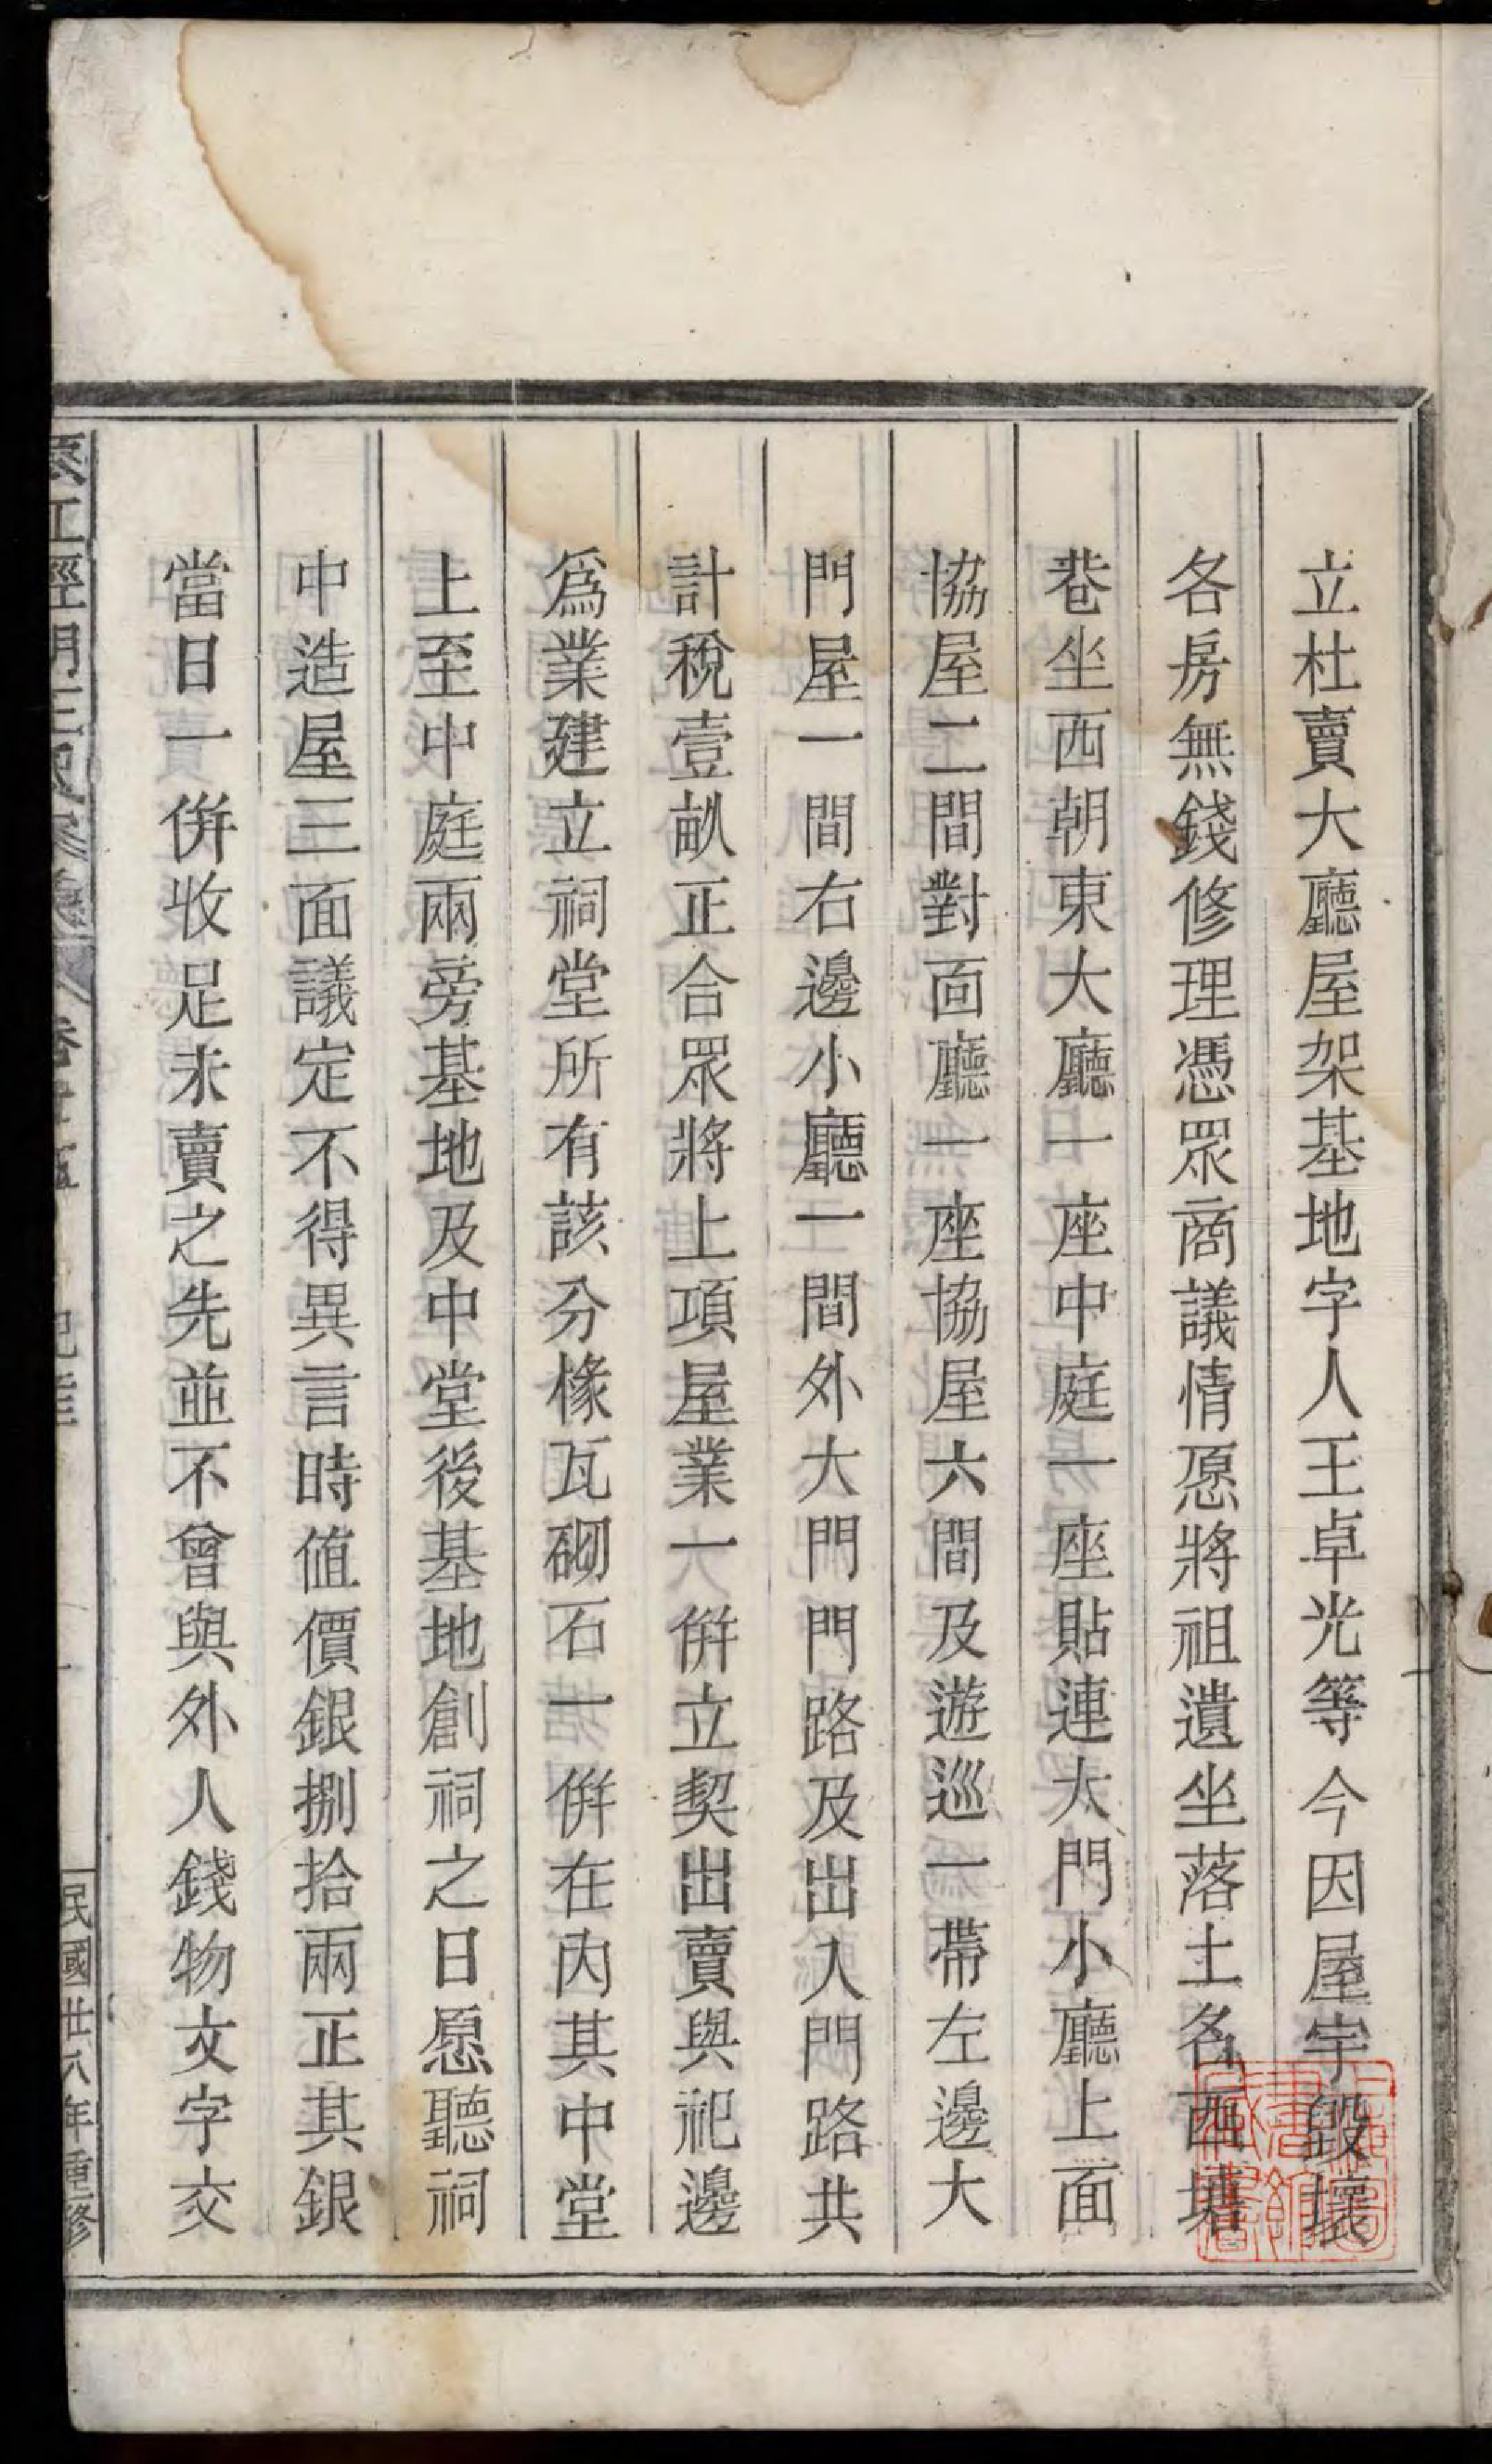 立杜賣大廳屋架基地字人王卓光等今因屋宇毀壞
各房無錢修理憑眾商議情愿將祖遺坐落土名西塘
巷坐西朝東大廳一座中庭一座貼連大門小廳上面
協屋二間對面廳一座協屋六間及遊巡一帶左邊大
門屋一間右邊小廳一間外大門門路及出入門路共
計稅壹畝正合眾將上項屋業一併立契出賣與祀邊
爲業建立祠堂所有該分椽瓦砌石一併在內其中堂
上至中庭兩旁基地及中堂後基地創祠之日愿聽祠
中造屋三面議定不得異言時值價銀捌拾兩正其銀
當日一併收足未賣之先並不曾與外人錢物文字交
民國廿八年重修